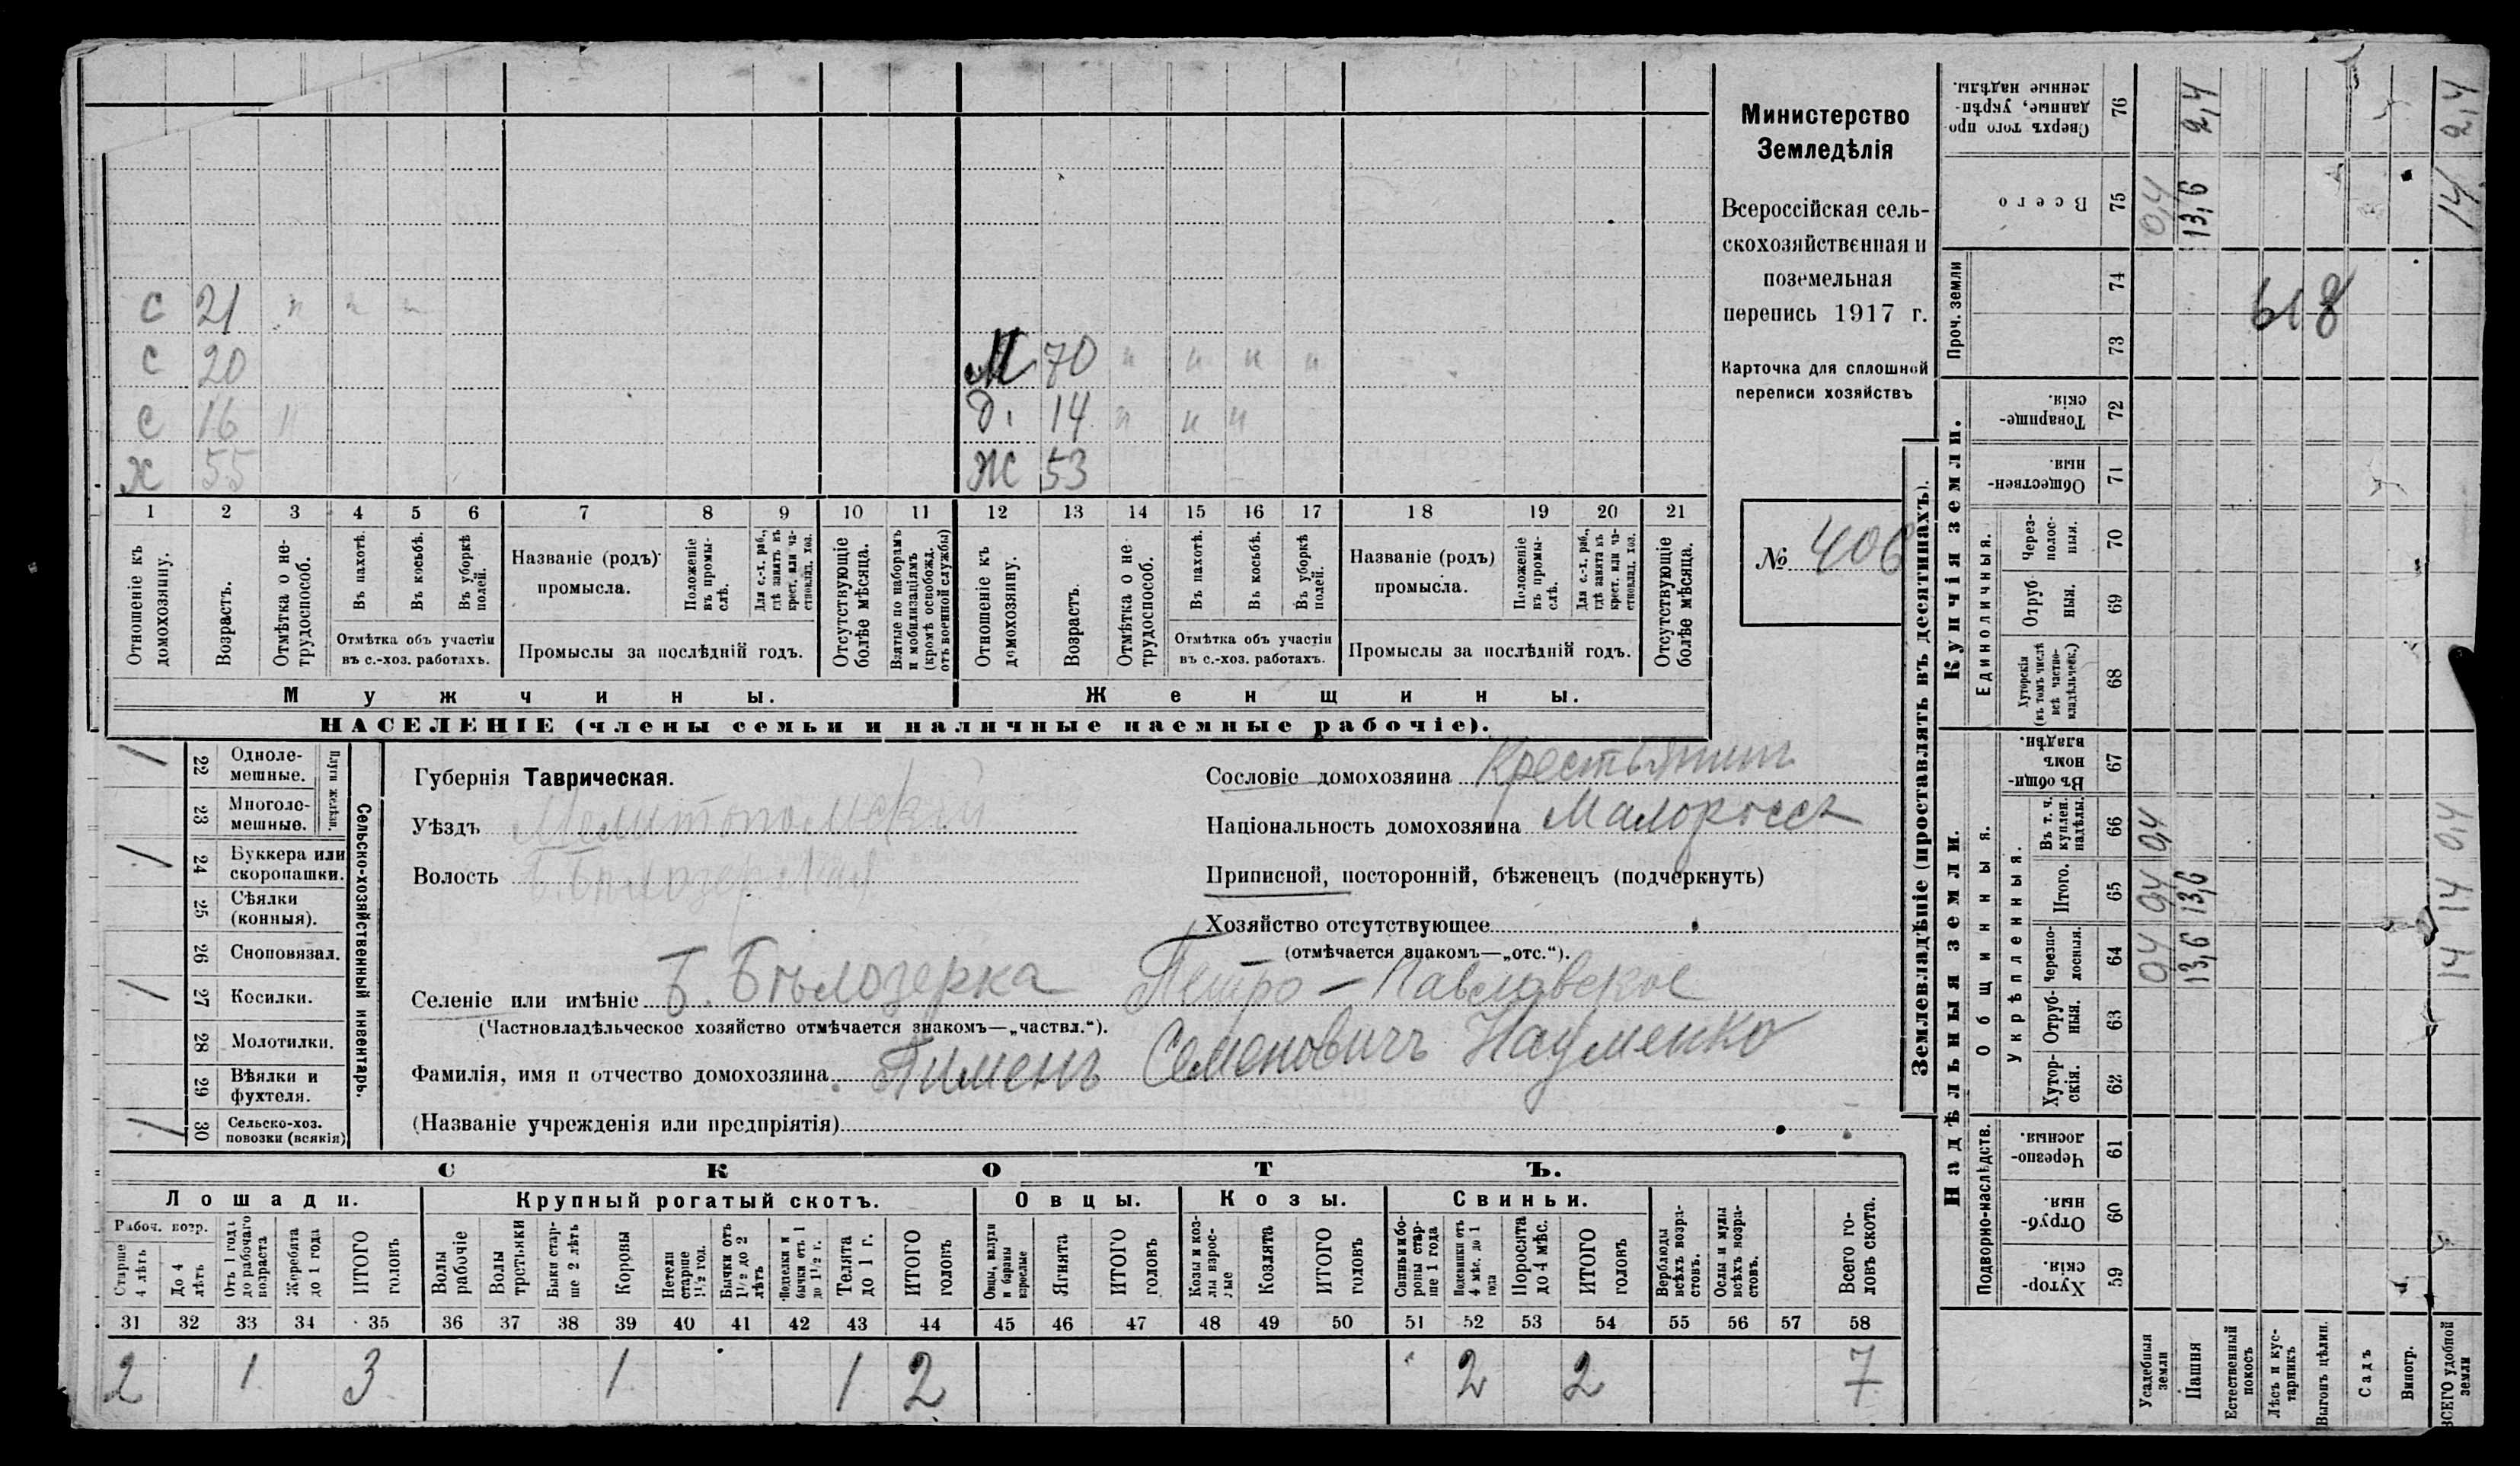 С 21 " " "
С 20
С 16 "
Х 55
М 70 " " " "
Д. 14 " " "
Ж 53
1 2 3 4 5 6 7 8 9 10 11 12 13 14 15 16 17 18 19 20 21
Отношеніе къ домохозяину.
Возрастъ.
Отмѣтка о не-трудоспособ.
Въ пахотѣ.
Въ косьбѣ.
Въ уборкѣ полей.
Отмѣтка объ участіи
въ с.-хоз. работахъ.
Названіе (родъ)
промысла.
Положеніе въ промы-слѣ.
Для с.-х. раб., гдѣ занятъ въ крест. или ча-стновлад. хоз.
Промыслы за послѣдній годъ.
Отсутствующіе болѣе мѣсяца.
Взятые по наборамъ и мобилизаціямъ (кромѣ освобожд. отъ военной службы)
Отношеніе къ домохозяину.
Возрастъ.
Отмѣтка о не трудоспособ.
Въ пахотѣ.
Въ косьбѣ.
Въ уборкѣ полей.
Отмѣтка объ участіи
въ с.-хоз. работахъ.
Названіе (родъ)
промысла.
Положеніе въ промы-слѣ.
Для с.-х. раб., гдѣ занята въ крест. или ча-стновлад. хоз.
Промыслы за послѣдній годъ.
Отсутствующіе болѣе мѣсяца.
Мужчины.
Женщины.
НАСЕЛЕНІЕ (члены семьи и наличные наемные рабочіе).
Министерство
Земледѣлія
Всероссійская сель-
скохозяйственная и
поземельная
перепись 1917 г.
Карточка для сплошной
переписи хозяйствъ
№ 406
/ 22 Одноле-мешные.
23 Многоле-мешные.
Плуги желѣзн.
/ 24 Буккера или скоропашки.
25 Сѣялки (конныя).
26 Сноповязал.
/ 27 Косилки.
28 Молотилки.
29 Вѣялки и фухтеля.
/ 30 Сельско-хоз. повозки (всякія)
Сельско-хозяйственный инвентарь.
Губернія Таврическая.
Уѣздъ Мелитопольскій
Волость Б. Бѣлозерская
Сословіе домохозяина Крестьянинъ
Національность домохозяина Малороссъ
Приписной, посторонній, бѣженецъ (подчеркнуть)
Хозяйство отсутствующее
(отмѣчается знакомъ—„отс.“).
Селеніе или имѣніе Б. Бѣлозерка Петро-Павловское
(Частновладѣльческое хозяйство отмѣчается знакомъ—„частвл.“).
Фамилія, имя и отчество домохозяина Пименъ Семеновичъ Науменко
(Названіе учрежденія или предпріятія)
СКОТЪ.
Лошади. Крупный рогатый скотъ. Овцы. Козы. Свиньи.
Рабоч. возр.
Старше 4 лѣтъ
До 4 лѣтъ
Отъ 1 года до рабочаго возраста
Жеребята до 1 года
ИТОГО головъ
Волы рабочіе
Волы третьяки
Быки стар-ше 2 лѣтъ
Коровы
Нетели старше 1½ год.
Бычки отъ 1½ до 2 лѣтъ
Подтелки и бычки отъ 1 до 1½ г.
Телята до 1 г.
ИТОГО головъ
Овцы, валухи и бараны взрослые
Ягнята
ИТОГО головъ
Козы и коз-лы взрос-лые
Козлята
ИТОГО головъ
Свиньи и бо-ровы стар-ше 1 года
Подсвинки отъ 4 мѣс. до 1 года
Поросята до 4 мѣс.
ИТОГО головъ
Верблюды всѣхъ возра-стовъ.
Ослы и мулы всѣхъ возра-стовъ.
Всего го-ловъ скота.
31 32 33 34 35 36 37 38 39 40 41 42 43 44 45 46 47 48 49 50 51 52 53 54 55 56 57 58
2 1 3 1 1 2 2 2 7
Землевладѣніе (проставлять въ десятинахъ).
Купчія земли.
Надѣльныя земли.
Сверхъ того про-данные, укрѣп-ленные надѣлы. 76 2,4 2,4
Всего 75 0,4 13,6 14
Проч. земли 74 73
618
Товарище-скія. 72
Обществен-ныя. 71
Единоличныя.
Через-полос-ныя. 70
Отруб-ныя. 69
Хуторскія (въ томъ числѣ всѣ частно-владѣльческ.) 68
Въ общи-номъ владѣн. 67
Общинныя.
Укрѣпленныя.
Въ т. ч. куплен. надѣлы. 66 0,4 0,4
Итого. 65 0,4 13,6 14
Черезпо-лосныя. 64 0,4 13,6 14
Отруб-ныя. 63
Хутор-скія. 62
Подворно-наслѣдств.
Черезпо-лосныя. 61
Отруб-ныя. 60
Хутор-скія. 59
Усадебныя земли
Пашня
Естественный покосъ
Лѣсъ и кус-тарникъ
Выгонъ цѣлин.
Садъ
Виногр.
ВСЕГО удобной земли